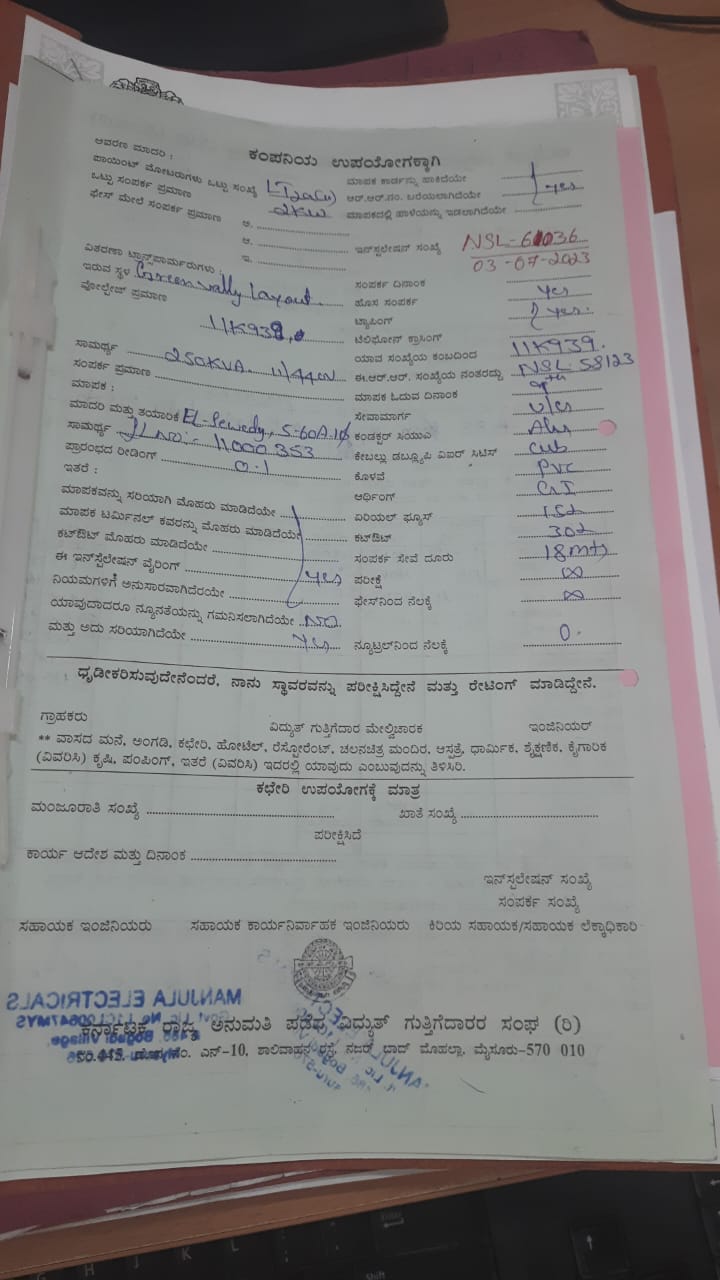 ಕಂಪನಿಯ ಉಪಯೋಗಕ್ಕಾಗಿ
ಆವರಣ ಮಾದರಿ :
ಪಾಯಿಂಟ್ ಮೋಟರುಗಳು ಒಟ್ಟು ಸಂಖ್ಯೆ
ಒಟ್ಟು ಸಂಪರ್ಕ ಪ್ರಮಾಣ 2KW
ಫೇಸ್ ಮೇಲೆ ಸಂಪರ್ಕ ಪ್ರಮಾಣ ಅ.
ಆ.
ಇ.
ವಿತರಣಾ ಟ್ರಾನ್ಸ್‌ಫಾರ್ಮರುಗಳು :
ಇರುವ ಸ್ಥಳ Greenvally Layout
ವೋಲ್ಟೇಜ್ ಪ್ರಮಾಣ
ಸಾಮರ್ಥ್ಯ 250KVA
ಸಂಪರ್ಕ ಪ್ರಮಾಣ
ಮಾಪಕ :
ಮಾದರಿ ಮತ್ತು ತಯಾರಿಕೆ
ಸಾಮರ್ಥ್ಯ 11000353
ಪ್ರಾರಂಭದ ರೀಡಿಂಗ್ 0.1
ಇತರೆ :
ಮಾಪಕವನ್ನು ಸರಿಯಾಗಿ ಮೊಹರು ಮಾಡಿದೆಯೇ
ಮಾಪಕ ಟರ್ಮಿನಲ್ ಕವರನ್ನು ಮೊಹರು ಮಾಡಿದೆಯೇ
ಕಟ್‌ಔಟ್ ಮೊಹರು ಮಾಡಿದೆಯೇ
ಈ ಇನ್‌ಸ್ಟಲೇಷನ್ ವೈರಿಂಗ್ yes
ನಿಯಮಗಳಿಗೆ ಅನುಸಾರವಾಗಿದೆರಯೇ
ಯಾವುದಾದರೂ ನ್ಯೂನತೆಯನ್ನು ಗಮನಿಸಲಾಗಿದೆಯೇ No
ಮತ್ತು ಅದು ಸರಿಯಾಗಿದೆಯೇ
ಮಾಪಕ ಕಾರ್ಡನ್ನು ಹಾಕಿದೆಯೇ
ಆರ್.ಆರ್.ನಂ. ಬರೆಯಲಾಗಿದೆಯೇ yes
ಮಾಪಕದಲ್ಲಿ ಹಾಳೆಯನ್ನು ಇಡಲಾಗಿದೆಯೇ
ಇನ್‌ಸ್ಟಲೇಷನ್ ಸಂಖ್ಯೆ
03-07-2023
ಸಂಪರ್ಕ ದಿನಾಂಕ
ಹೊಸ ಸಂಪರ್ಕ yes
ಟ್ಯಾಪಿಂಗ್ yes
ಟೆಲಿಫೋನ್ ಕ್ರಾಸಿಂಗ್
ಯಾವ ಸಂಖ್ಯೆಯ ಕಂಬದಿಂದ 11K939
ಈ.ಆರ್.ಆರ್. ಸಂಖ್ಯೆಯ ನಂತರದ್ದು NSL-58123
ಮಾಪಕ ಓದುವ ದಿನಾಂಕ
ಸೇವಾಮಾರ್ಗ
ಕಂಡಕ್ಟರ್ ಸಿಯುಎ
ಕೇಬಲ್ಲು ಡಬ್ಲ್ಯೂಪಿ ವಿಐರ್ ಸಿಟಿಸ್
ಕೊಳವೆ PVC
ಅರ್ಥಿಂಗ್ GI
ಏರಿಯಲ್ ಫ್ಯೂಸ್
ಕಟ್‌ಔಟ್
ಸಂಪರ್ಕ ಸೇವೆ ದೂರು 18mts
ಪರೀಕ್ಷೆ
ಫೇಸ್‌ನಿಂದ ನೆಲಕ್ಕೆ
ನ್ಯೂಟ್ರಲ್‌ನಿಂದ ನೆಲಕ್ಕೆ 0
ಧೃಡೀಕರಿಸುವುದೇನೆಂದರೆ, ನಾನು ಸ್ಥಾವರವನ್ನು ಪರೀಕ್ಷಿಸಿದ್ದೇನೆ ಮತ್ತು ರೇಟಿಂಗ್ ಮಾಡಿದ್ದೇನೆ.
ಗ್ರಾಹಕರು ವಿದ್ಯುತ್ ಗುತ್ತಿಗೆದಾರ ಮೇಲ್ವಿಚಾರಕ ಇಂಜಿನಿಯರ್
** ವಾಸದ ಮನೆ, ಅಂಗಡಿ, ಕಛೇರಿ, ಹೋಟೆಲ್, ರೆಸ್ಟೋರೆಂಟ್, ಚಲನಚಿತ್ರ ಮಂದಿರ, ಆಸ್ಪತ್ರೆ, ಧಾರ್ಮಿಕ, ಶೈಕ್ಷಣಿಕ, ಕೈಗಾರಿಕ
(ವಿವರಿಸಿ) ಕೃಷಿ, ಪಂಪಿಂಗ್, ಇತರೆ (ವಿವರಿಸಿ) ಇದರಲ್ಲಿ ಯಾವುದು ಎಂಬುವುದನ್ನು ತಿಳಿಸಿರಿ.
ಕಛೇರಿ ಉಪಯೋಗಕ್ಕೆ ಮಾತ್ರ
ಮಂಜೂರಾತಿ ಸಂಖ್ಯೆ ಖಾತೆ ಸಂಖ್ಯೆ
ಪರೀಕ್ಷಿಸಿದೆ
ಕಾರ್ಯ ಆದೇಶ ಮತ್ತು ದಿನಾಂಕ
ಇನ್‌ಸ್ಟಲೇಷನ್ ಸಂಖ್ಯೆ
ಸಂಪರ್ಕ ಸಂಖ್ಯೆ
ಸಹಾಯಕ ಇಂಜಿನಿಯರು ಸಹಾಯಕ ಕಾರ್ಯನಿರ್ವಾಹಕ ಇಂಜಿನಿಯರು ಕಿರಿಯ ಸಹಾಯಕ/ಸಹಾಯಕ ಲೆಕ್ಕಾಧಿಕಾರಿ
MANJULA ELECTRICALS
ಕರ್ನಾಟಕ ರಾಜ್ಯ ಅನುಮತಿ ಪಡೆದ ವಿದ್ಯುತ್ ಗುತ್ತಿಗೆದಾರರ ಸಂಘ (ರಿ)
ನಂ. ಎನ್-10, ಶಾಲಿವಾಹನ ರಸ್ತೆ, ನಜರ್ ಬಾದ್ ಮೊಹಲ್ಲಾ, ಮೈಸೂರು-570 010